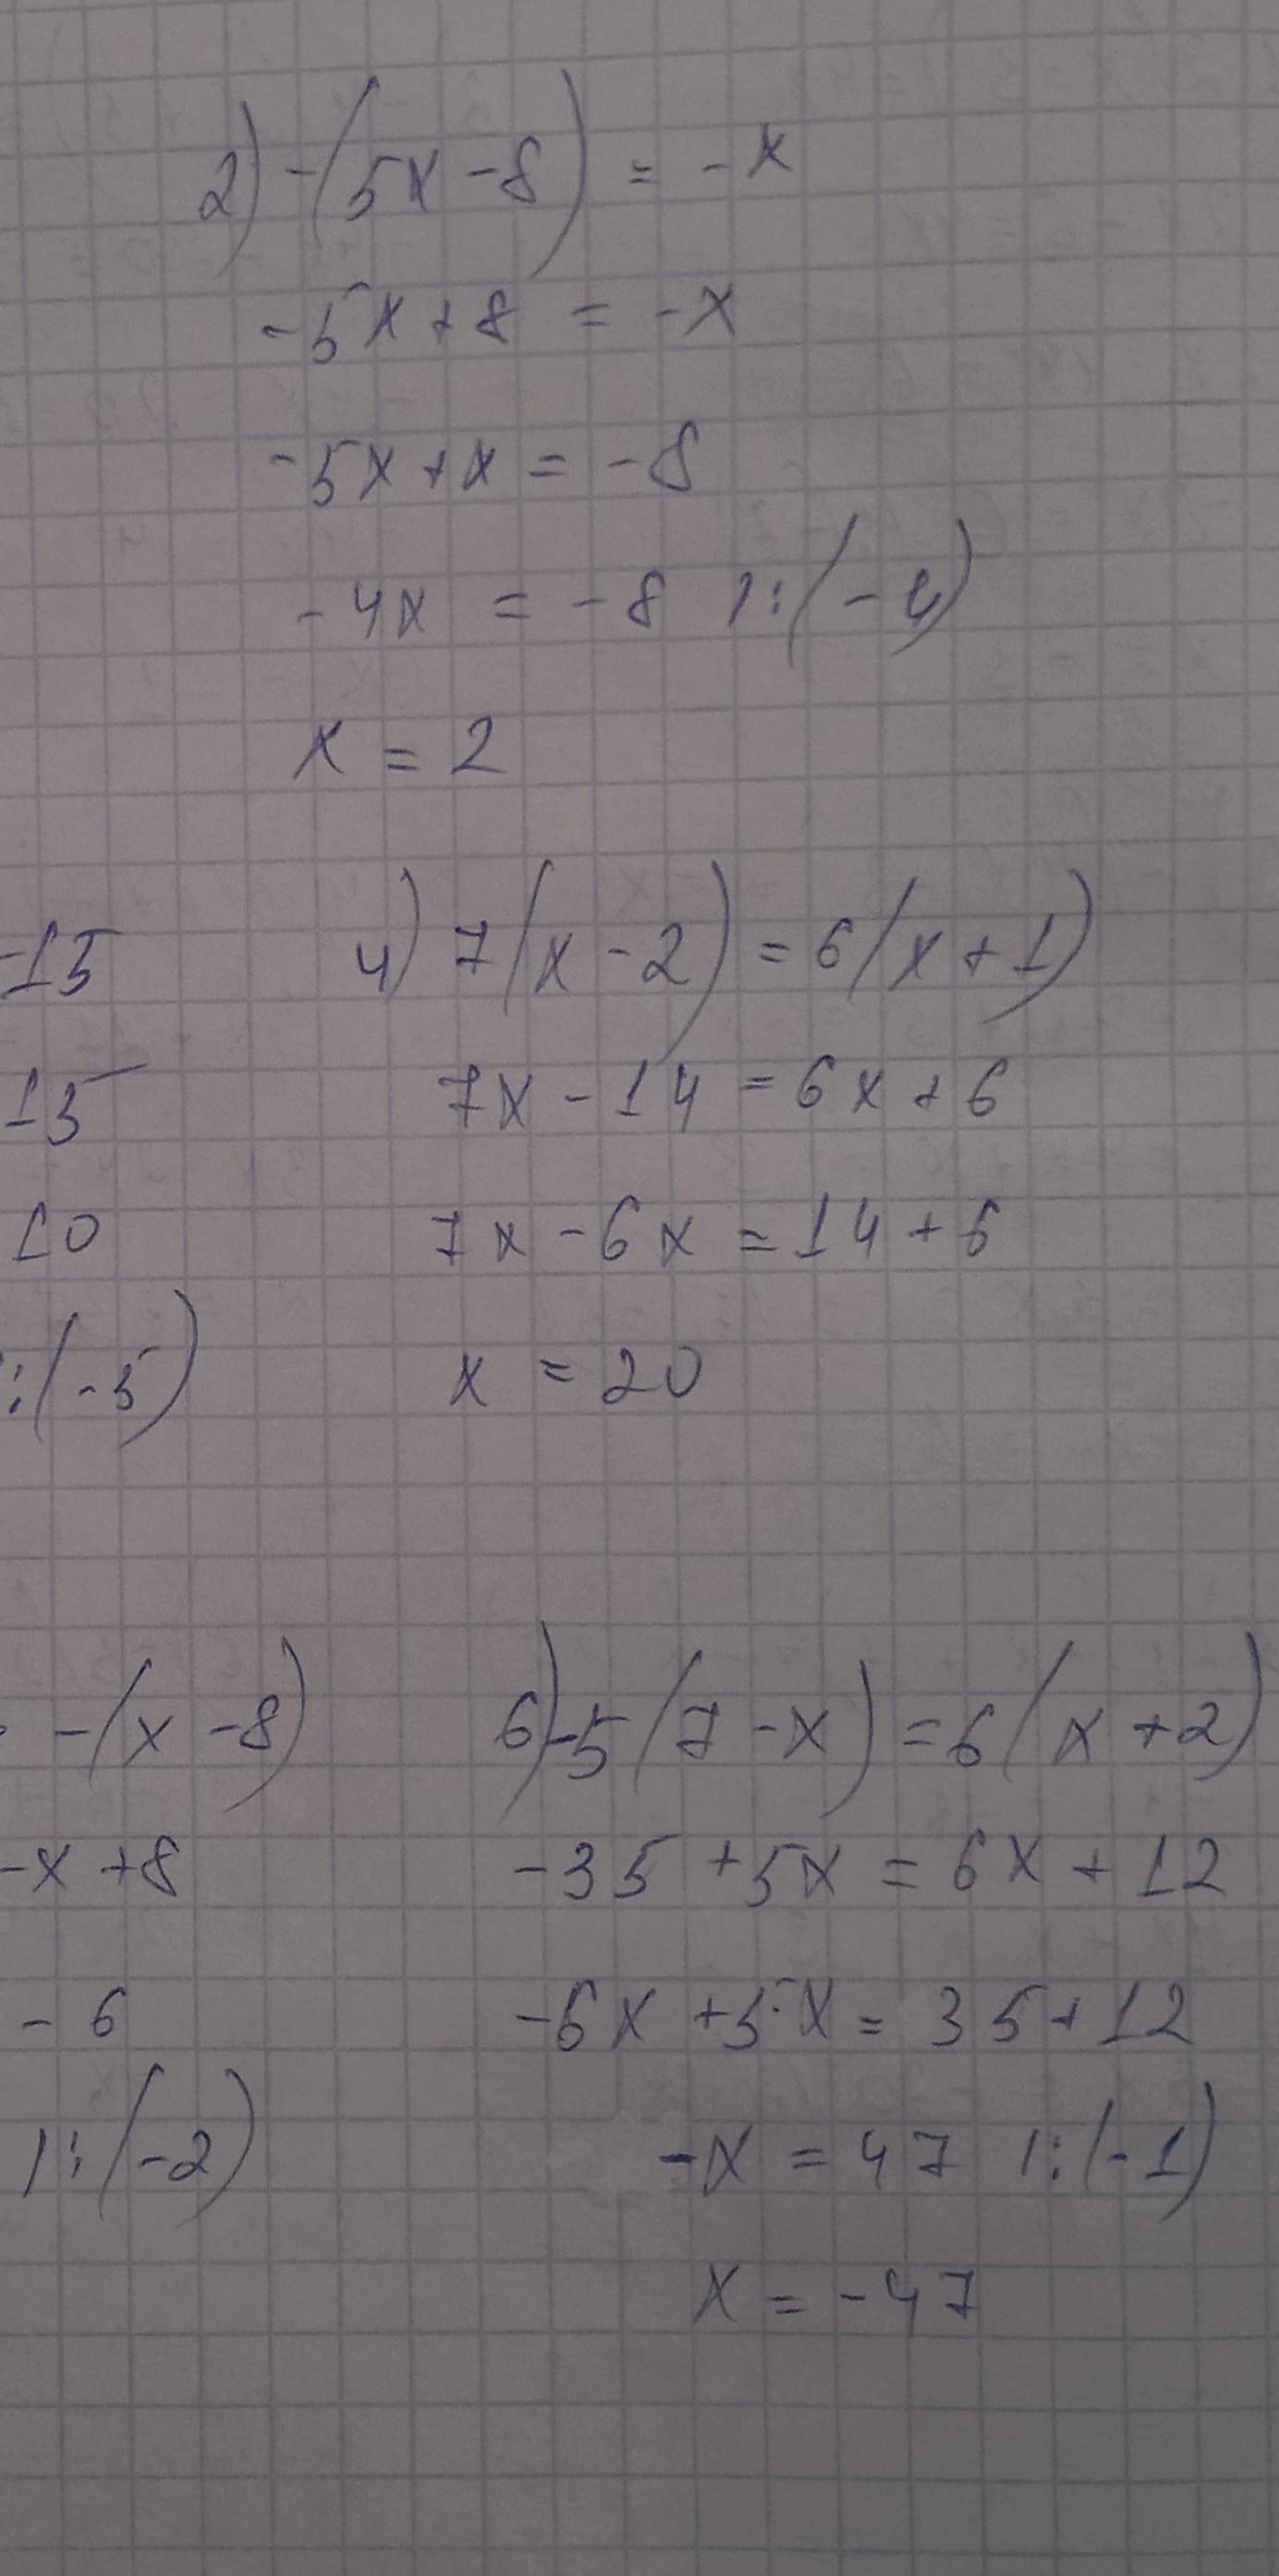 2) -(5x-8) = -x
-5x+8 = -x
-5x+x = -8
-4x = -8 |:(-4)
x = 2
-15
4) 7(x-2) = 6(x+1)
15
7x-14 = 6x+6
10
7x-6x = 14+6
:(-5)
x = 20
-(x-8)
6) -5(7-x) = 6(x+2)
-x+8
-35+5x = 6x+12
-6
-6x+5x = 35+12
|:(-2)
-x = 47 |:(-1)
x = -47